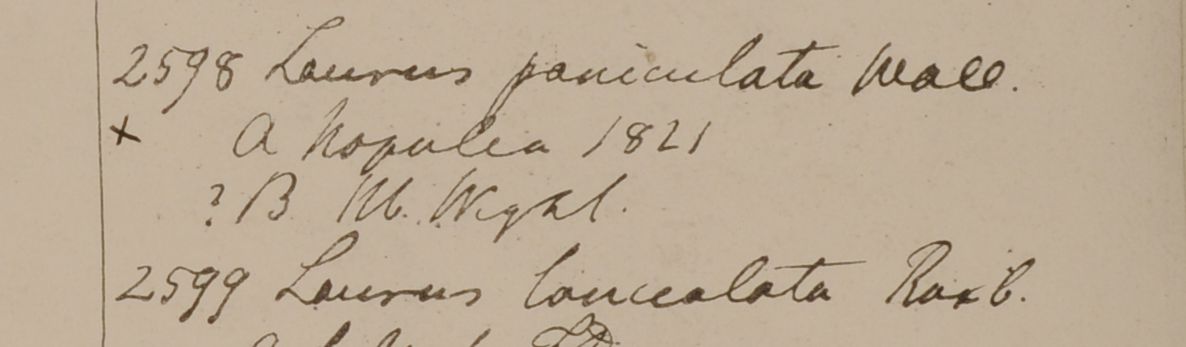 2598 Laurus paniculata Wall.
+ A Napalia 1821
? B Hb. Wight.
2599 Laurus lanceolata Roxb.